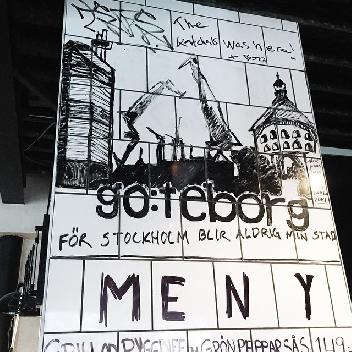 The
was here!
gö:teborg
FÖR STOCKHOLM BLIR ALDRIG MIN STAD
MENY
GRILLAD RYGGBIFF GRÖNPEPPARSÅS 149